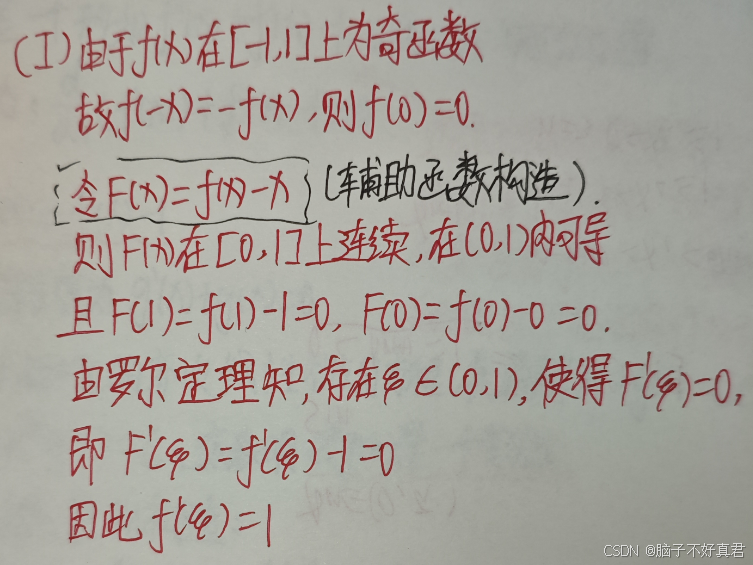 (I)由于f(x)在[-1,1]上为奇函数
故f(-x)=-f(x),则f(0)=0.
令F(x)=f(x)-x (辅助函数构造).
则F(x)在[0,1]上连续,在(0,1)内可导
且F(1)=f(1)-1=0, F(0)=f(0)-0=0.
由罗尔定理知,存在φ∈(0,1),使得F'(φ)=0,
即 F'(φ)=f'(φ)-1=0
因此f'(φ)=1
CSDN @脑子不好真君